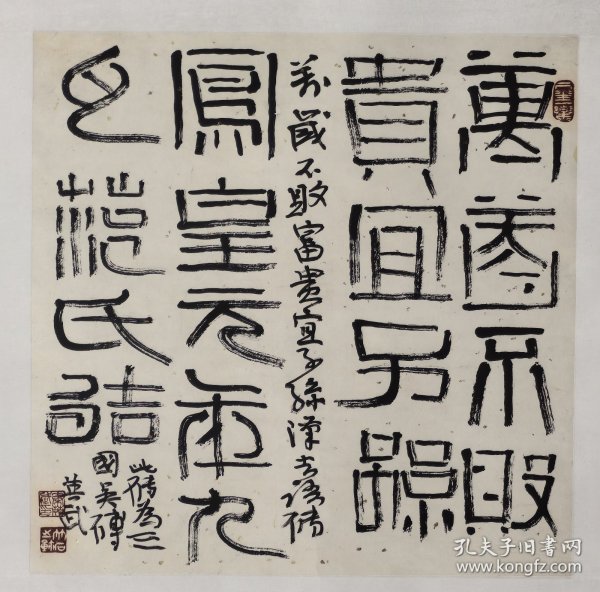 萬歲不敗
貴宜子孫
萬歲不敗富貴宜子孫漢吉語磚
鳳皇元年九
范氏
此磚為三
國吳磚
孔夫子旧书网
www.kongfz.com